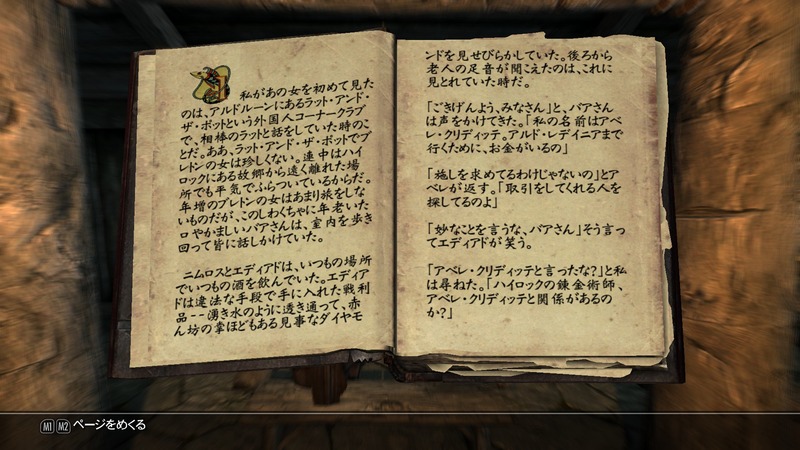 私があの女を初めて見た
のは、アルドルーンにあるラット・アンド・
ザ・ポットという外国人コーナークラブ
で、相棒のラットと話をしていた時のこ
とだ。ああ、ラット・アンド・ザ・ポットでブ
レトンの女は珍しくない。連中はハイ
ロックにある故郷から遠く離れた場
所でも平気でふらついているからだ。
年増のブレトンの女はあまり旅をしな
いものだが、このしわくちゃに年老いた
口やかましいバアさんは、室内を歩き
回って皆に話しかけていた。
ニムロスとエディアドは、いつもの場所
でいつもの酒を飲んでいた。エディア
ドは違法な手段で手に入れた戦利
品--湧き水のように透き通って、赤
ん坊の掌ほどもある見事なダイヤモ
ンドを見せびらかしていた。後ろから
老人の足音が聞こえたのは、これに
見とれていた時だ。
「ごきげんよう、みなさん」と、バアさん
は声をかけてきた。「私の名前はアベ
レ・クリディッテ。アルド・レデイニアまで
行くために、お金がいるの」
「施しを求めてるわけじゃないの」とア
ベレが返す。「取引をしてくれる人を
探してるのよ」
「妙なことを言うな、バアさん」そう言っ
てエディアドが笑う。
「アベレ・クリディッテと言ったな?」と私
は尋ねた。「ハイロックの錬金術師、
アベレ・クリディッテと関係があるの
か?」
M1 M2 ページをめくる